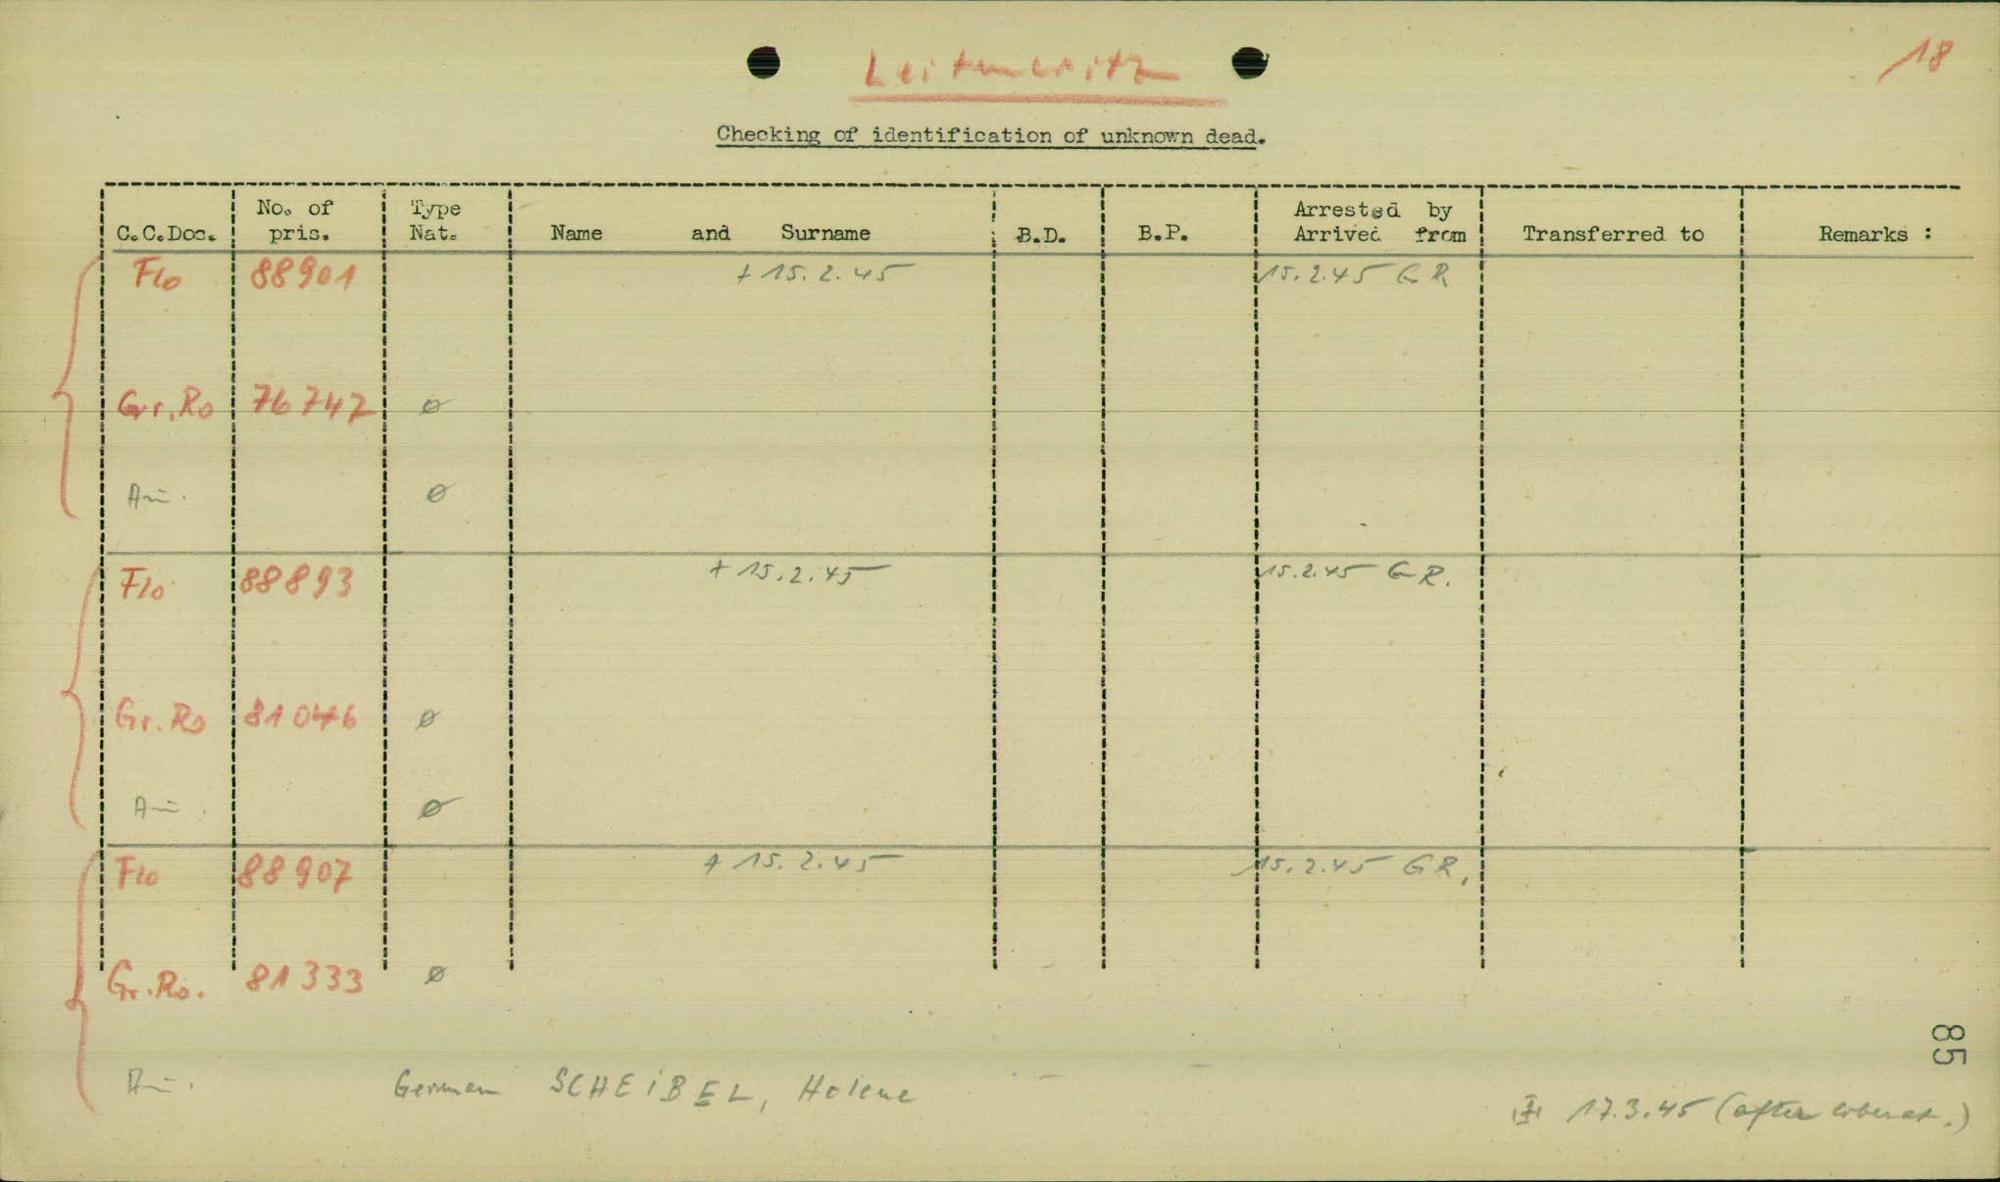 Leitmeritz
18
Checking of identification of unknown dead.
C.C.Doc. No. of pris. Type Nat. Name and Surname B.D. B.P. Arrested by Arrived from Transferred to Remarks :
Flo 88901 + 15.2.45 15.2.45 G R
Gr.Ro 76747 ø
ø
Flo 88893 + 15.2.45 15.2.45 G R.
Gr.Ro 81046 ø
ø
Flo 88907 + 15.2.45 15.2.45 G R.
Gr.Ro. 81333 ø
German SCHEIBEL, Helene - -
17.3.45 (after liberat.)
85